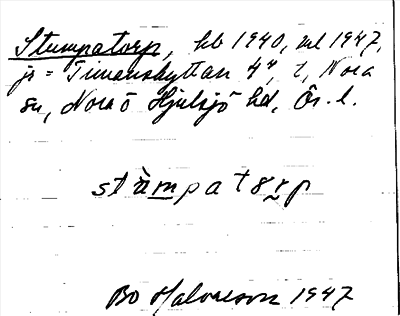 Stumpatorp, hb 1940, ml 1947,
js = Timanshyttan 4⁴, t, Nora
sn, Nora o Hjulsjö hd, Ör. l.
stùmpatɤrp
Bo Halvarson 1947